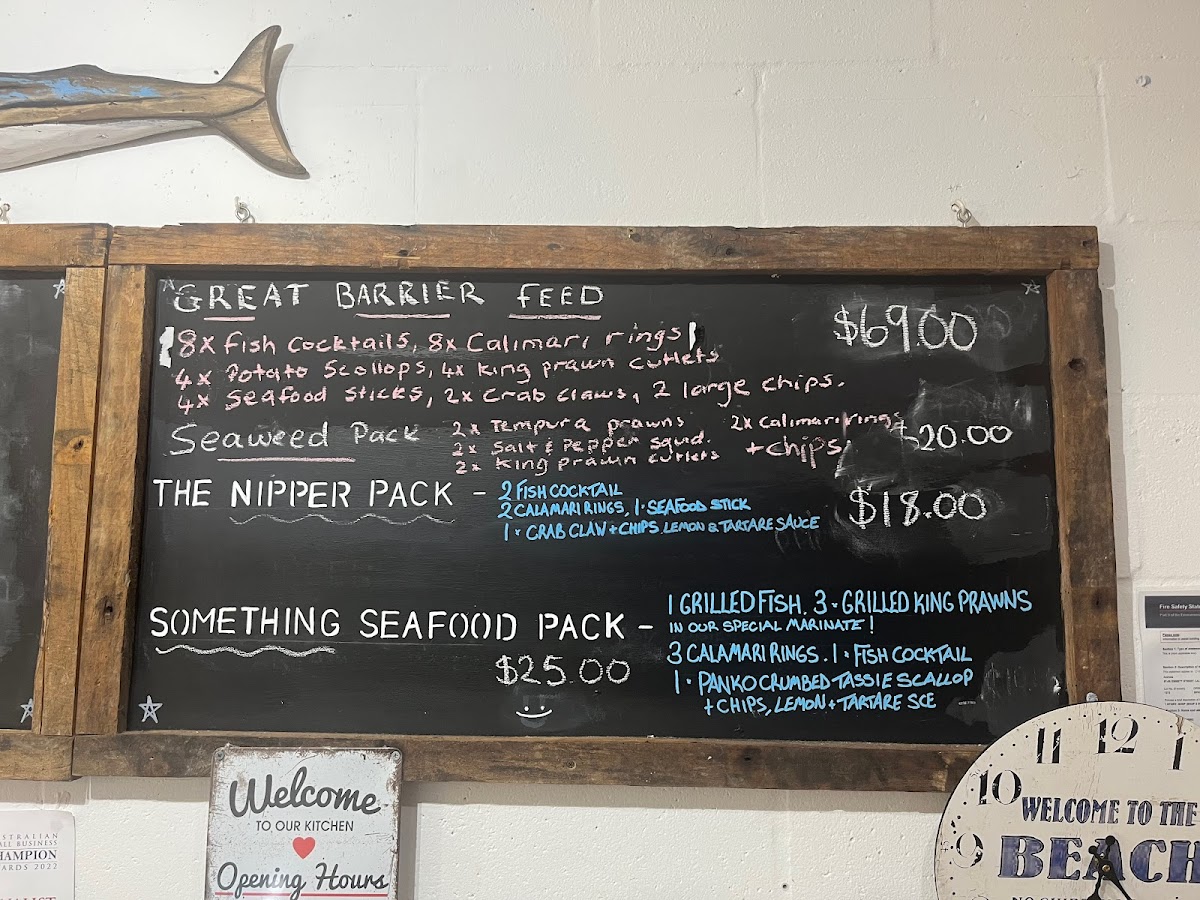 GREAT BARRIER FEED
$69.00
8x Fish Cocktails, 8x Calimari rings
4x Potato Scollops, 4x King prawn cutlets
4x Seafood Sticks, 2x Crab Claws, 2 large Chips.
Seaweed Pack
2x Tempura prawns 2x Calimari rings
2x Salt & Pepper squd. + chips
2x King prawn cutlets
$20.00
THE NIPPER PACK -
2 FISH COCKTAIL
2 CALAMARI RINGS, 1 · SEAFOOD STICK
1 · CRAB CLAW + CHIPS, LEMON & TARTARE SAUCE
$18.00
SOMETHING SEAFOOD PACK -
$25.00
1 GRILLED FISH. 3 · GRILLED KING PRAWNS
IN OUR SPECIAL MARINATE!
3 CALAMARI RINGS . 1 · FISH COCKTAIL
1 · PANKO CRUMBED TASSIE SCALLOP
+ CHIPS, LEMON + TARTARE SCE
Welcome
TO OUR KITCHEN
Opening Hours
11 12 1
10
9
WELCOME TO THE
BEACH
Fire Safety
CHAMPION
2022